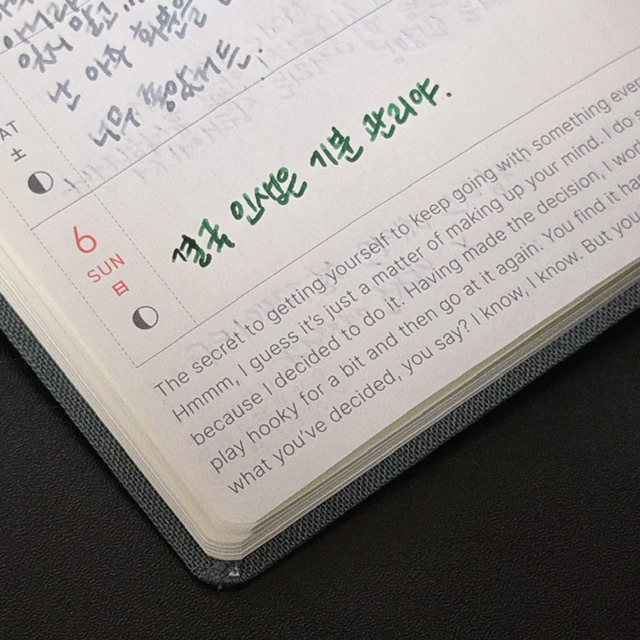 있어
난 아주
너무 좋았거든!
AT
土
6
SUN
日
결국 인생은 기분 관리야.
The secret to getting yourself to keep going with something ever
Hmmm, I guess it's just a matter of making up your mind. I do s
because I decided to do it. Having made the decision, I work
play hooky for a bit and then go at it again. You find it har
what you've decided, you say? I know, I know. But you